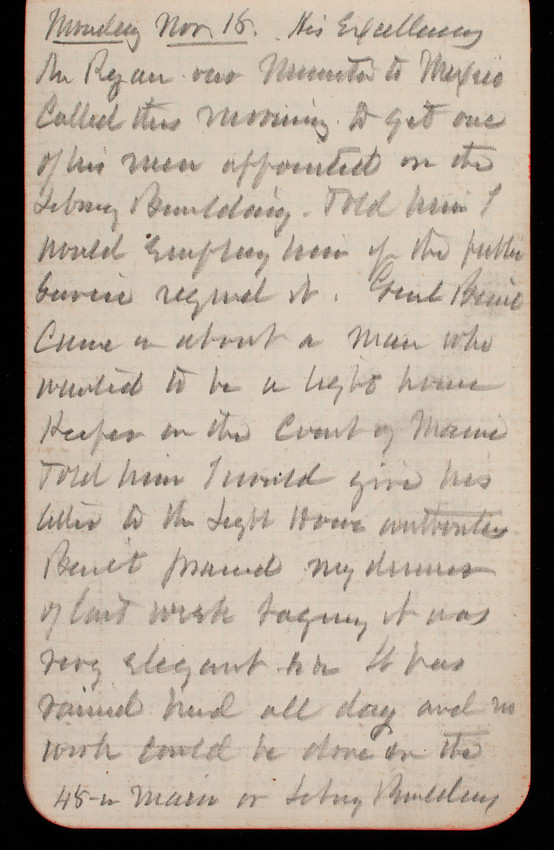 Monday Nov. 18. His Excellency
Mr Ryan our Minister to Mexico
Called this morning to get one
of his men appointed on the
Library Building. Told him I
would Employ him if the public
business required it. Genl Benét
Came in about a man who
wanted to be a light house
Keeper on the Coast of Maine
Told him I would give his
letter to the Light House authorities
Benét praised my dinner
of last week saying it was
very elegant &c It has
rained hard all day and no
work could be done on the
48-in Main or Library Building